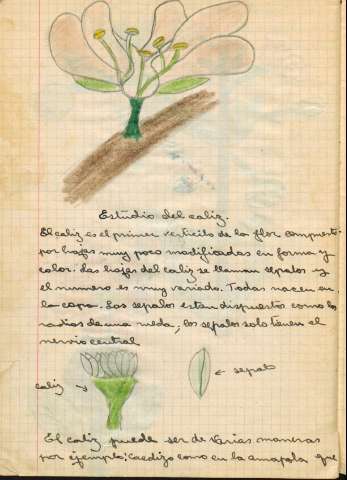 Estudio del caliz.
El caliz es el primer verticilo de la flor compuesto
por hojas muy poco modificadas en forma y
color. Las hojas del caliz se llaman sépalos y
el numero es muy variado. Todas nacen en
la copa. Los sepalos estan dispuestos como los
radios de una rueda, los sepalos solo tienen el
nervio central
caliz
sepalo
El caliz puede ser de varias maneras
por ejemplo; Caedizo como en la amapola que